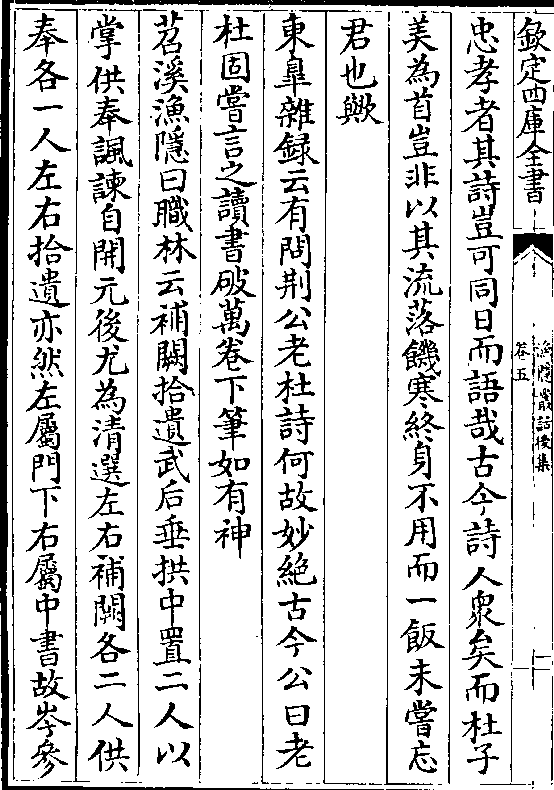 欽定四庫全書
漁隱叢話後集
卷五
二
忠孝者其詩豈可同日而語哉古今詩人衆矣而杜子
美為首豈非以其流落饑寒終身不用而一飯未嘗忘
君也歟
東臯雜録云有問荆公老杜詩何故妙絶古今公曰老
杜固嘗言之讀書破萬卷下筆如有神
苕溪漁隱曰職林云補闕拾遺武后垂拱中置二人以
掌供奉諷諫自開元後尤為清選左右補闕各二人供
奉各一人左右拾遺亦然左屬門下右屬中書故岑參